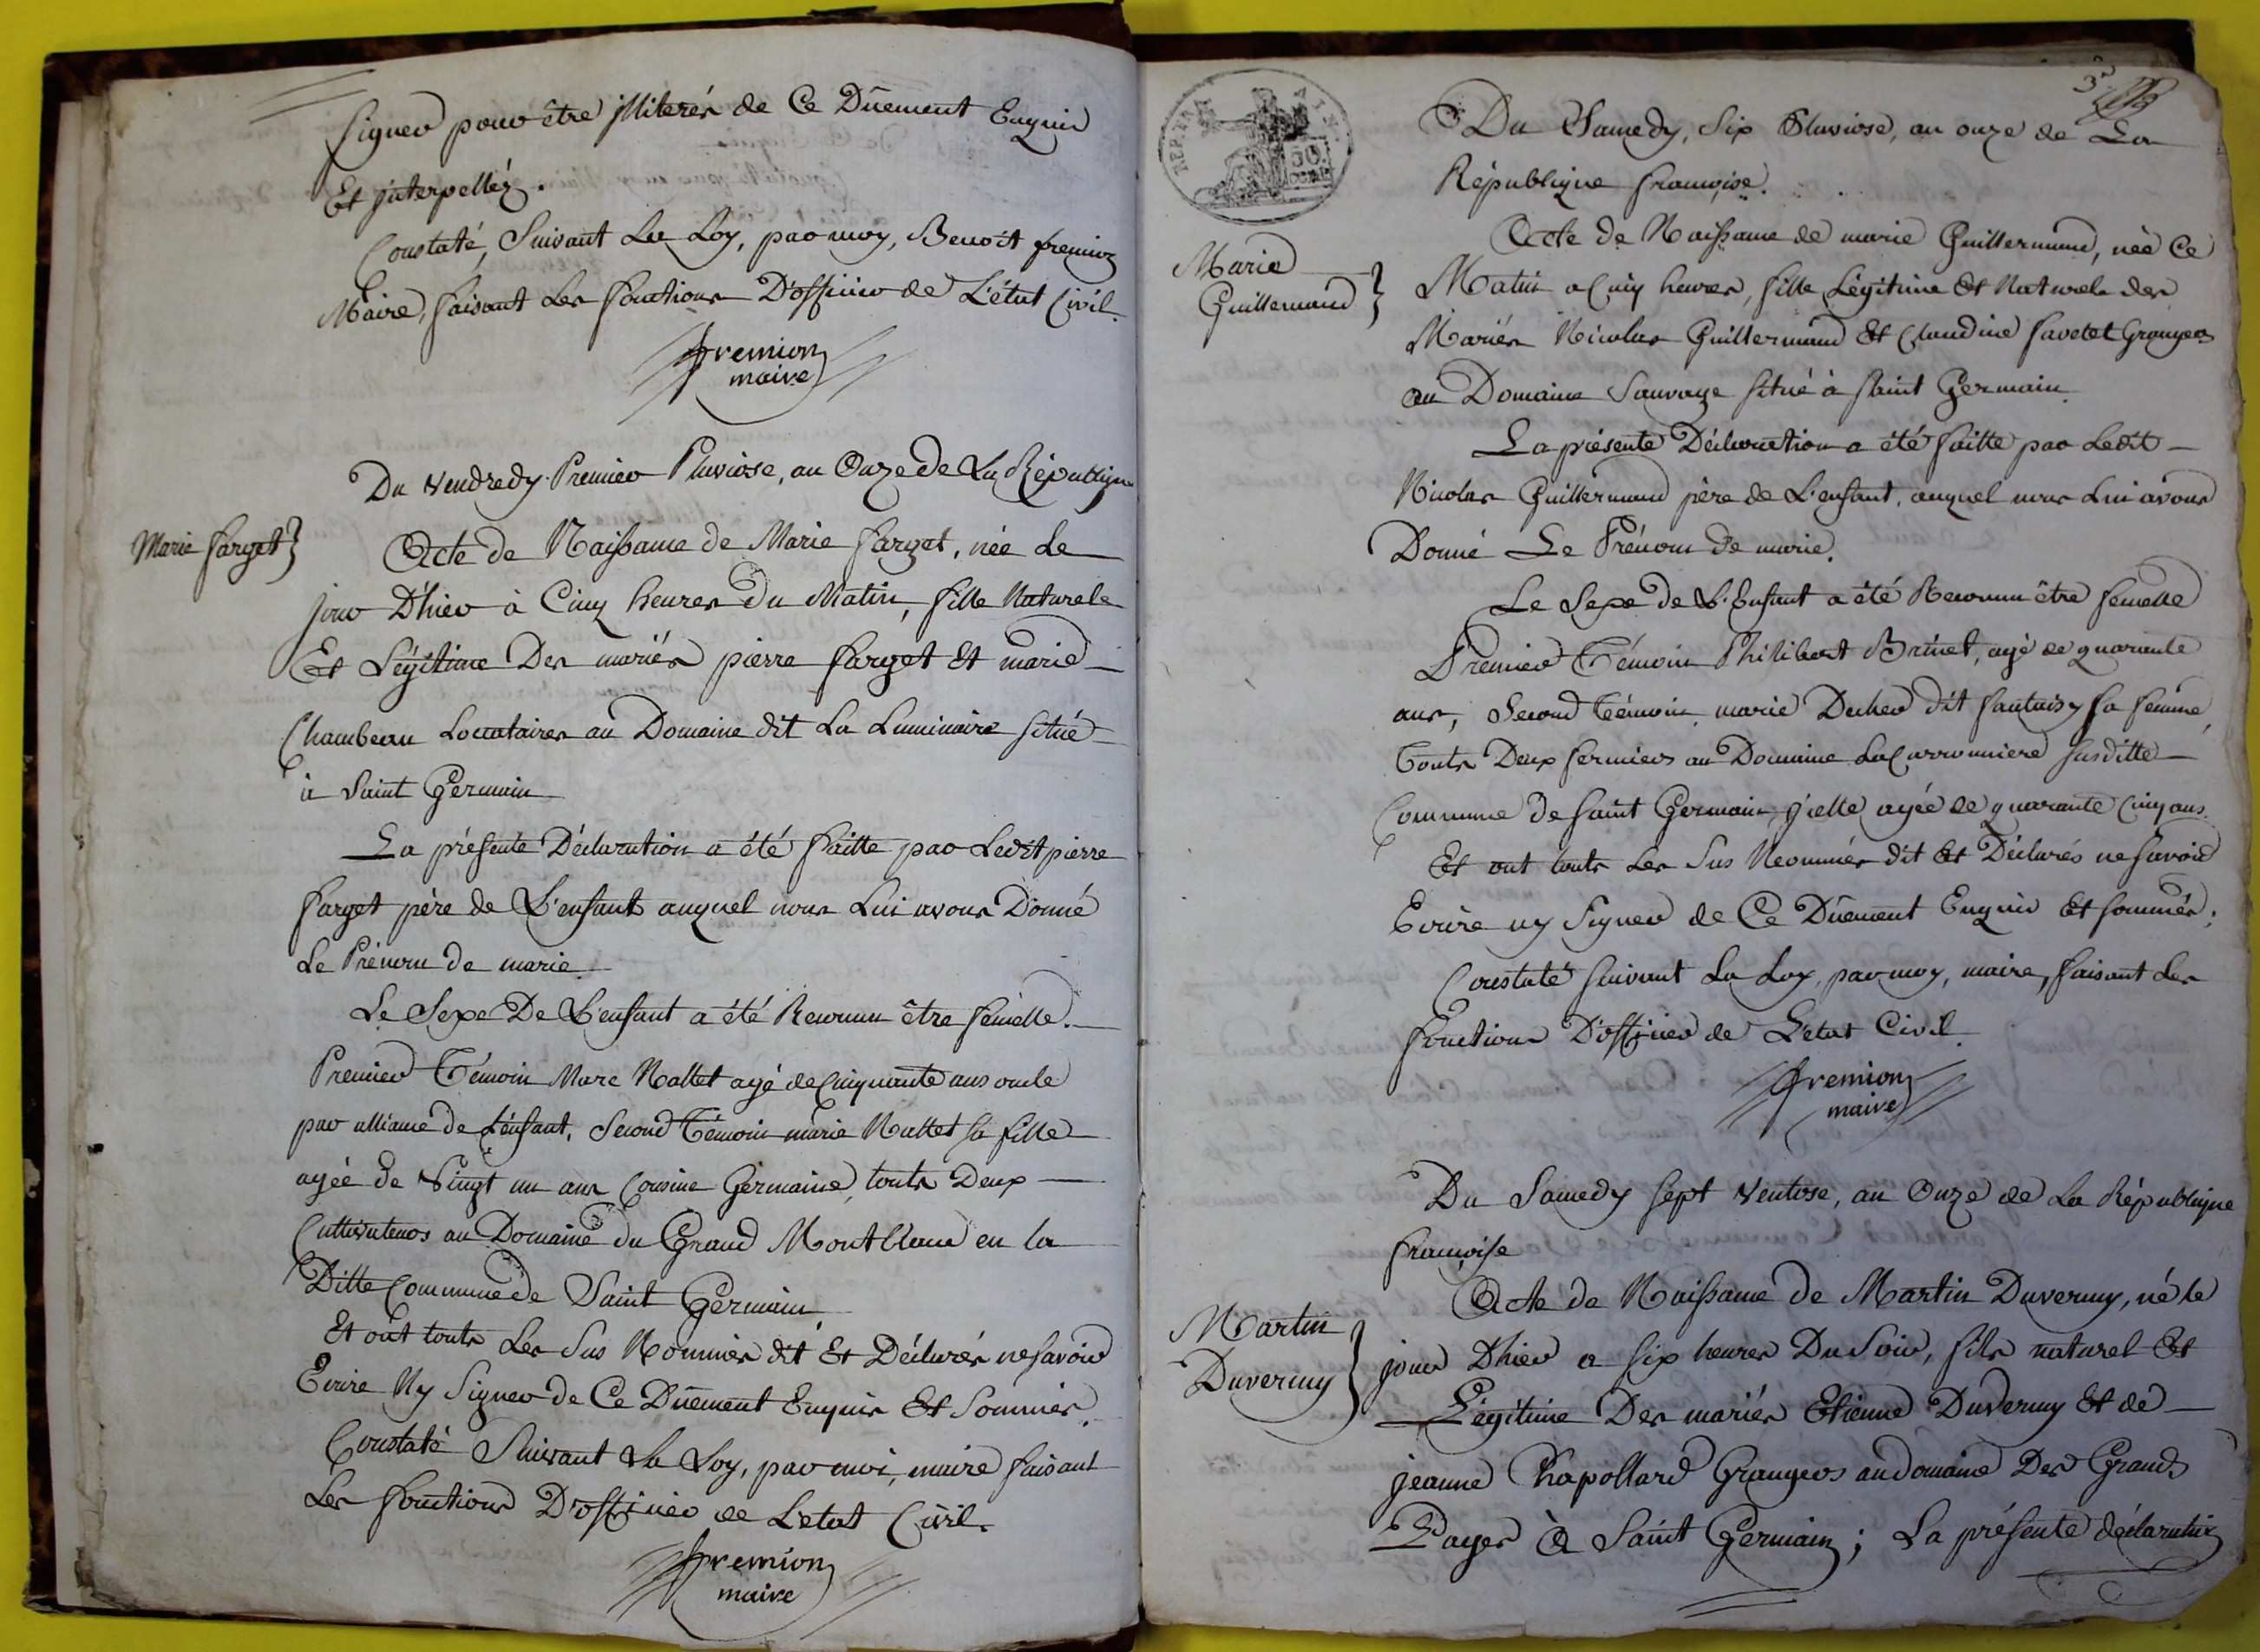 signer pour être illiterés de Ce Dûement Enquis
Et interpellés.
Constaté, Suivant La Loy, par moy, Benoit fremion
Maire, faisant Les fonctions D'officier de L'état Civil.
fremion
maire
Du Vendredy Premier Pluviose, an Onze de La République
Marie farget
Acte de Naissance de Marie farget, née Le
jour D'hier à Cinq heures du Matin, fille Naturele
Et Légitime Des mariés pierre farget Et marie
Chambeau Locataires au Domaine dit La Luminaire situé
à Saint Germain
La présente Déclaration a été faitte par Ledit pierre
farget père de L'enfant auquel nous Lui avons Donné
Le Prénom de marie
Le Sexe De L'enfant a été Reconnu être femelle.
Premier Témoin Marc Nallet agé de Cinquante ans oncle
par alliance de L'enfant, Second Témoin marie Nallet sa fille
agée de Vingt un ans Cousine Germaine, touts Deux
Cultivateurs au Domaine du Grand Montblanc en la
Ditte Commune de Saint Germain.
Et ont touts Les Sus Nommés dit Et Déclarés ne savoir
Ecrire Ny Signer de Ce Dûement Enquis Et Sommés.
Constaté Suivant La Loy, par moi, maire faisant
Les fonctions D'officier de L'etat Civil.
fremion
maire
3
REP. FRA.
50
CENT.
Du Samedy, Six Pluviose, an onze de La
République françoise.
Marie
Guillermand
Acte de Naissance de marie Guillermand, née Ce
Matin a Cinq heures, fille Légitime Et Naturele des
Mariés Nicolas Guillermand Et Claudine favetet Grangers
au Domaine Sauvage situé à saint Germain.
La présente Déclaration a été faitte par Ledit
Nicolas Guillermand père de L'enfant, auquel nous Lui avons
Donné Le Prénom de marie.
Le Sexe de L'Enfant a été Reconnu être femelle
Premier Témoin Philibert Brinet, agé de quarante
ans, Second Témoin marie Ducher dit fantaisy sa femme,
Touts Deux fermiers au Domaine LaCarronniere susditte
Commune de saint Germain, jcelle agée de quarante Cinq ans.
Et ont touts Les Sus Nommés dit Et Déclarés ne savoir
Ecrire ny Signer de Ce Dûement Enquis Et sommés.
Constaté suivant La Loy, par moy, maire, faisant Les
fonctions D'officier de L'etat Civil.
fremion
maire
Du Samedy sept Ventose, an Onze de La République
françoise
Martin
Duverny
Acte de Naissance de Martin Duverny, né le
jour D'hier a six heures Du Soir, fils naturel Et
Légitime Des mariés Etienne Duverny Et de
jeanne Chapollard Grangers au domaine Des Grands
Pages à Saint Germain; La présente déclaration